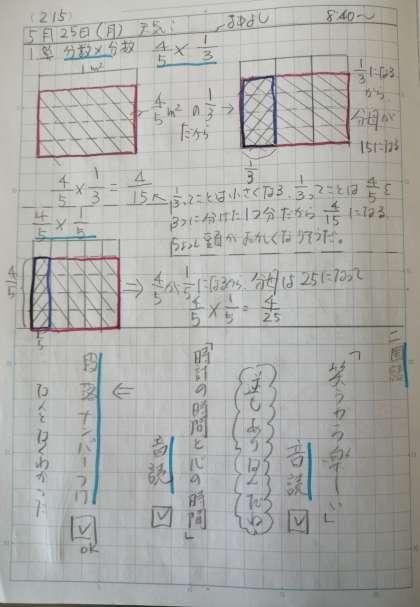 (215)
5月25日(月) 天気:
8:40~
1算 分数×分数 4/5×1/3
1m²
4/5m²の1/3
だから
1/3になる
から、
分母が
15になる
1/3
4/5×1/3=4/15
1/3ってことは小さくなる、1/3ってことは4/5を
3つに分けた1つ分だから4/15になる
4/5×1/5
4/5
1/5
4/5が1/5になるから、分母は25になって
4/5×1/5=4/25
二国語
「笑うから楽しい」
音読
逆もありなんだね
「時計の時間と心の時間」
音読
段落ナンバーつけ
なんとなくわかった
OK